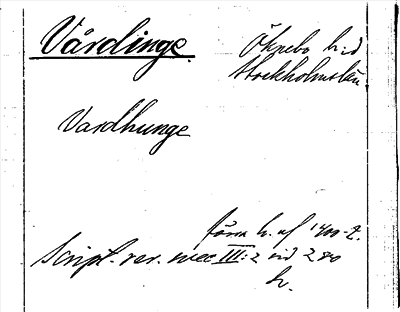 Vårdinge.
Öknebo h:d
Stockholms län.
Vardhunge
förra h. af 1400-t.
Script. rer. svec. III:2 sid 280
h.